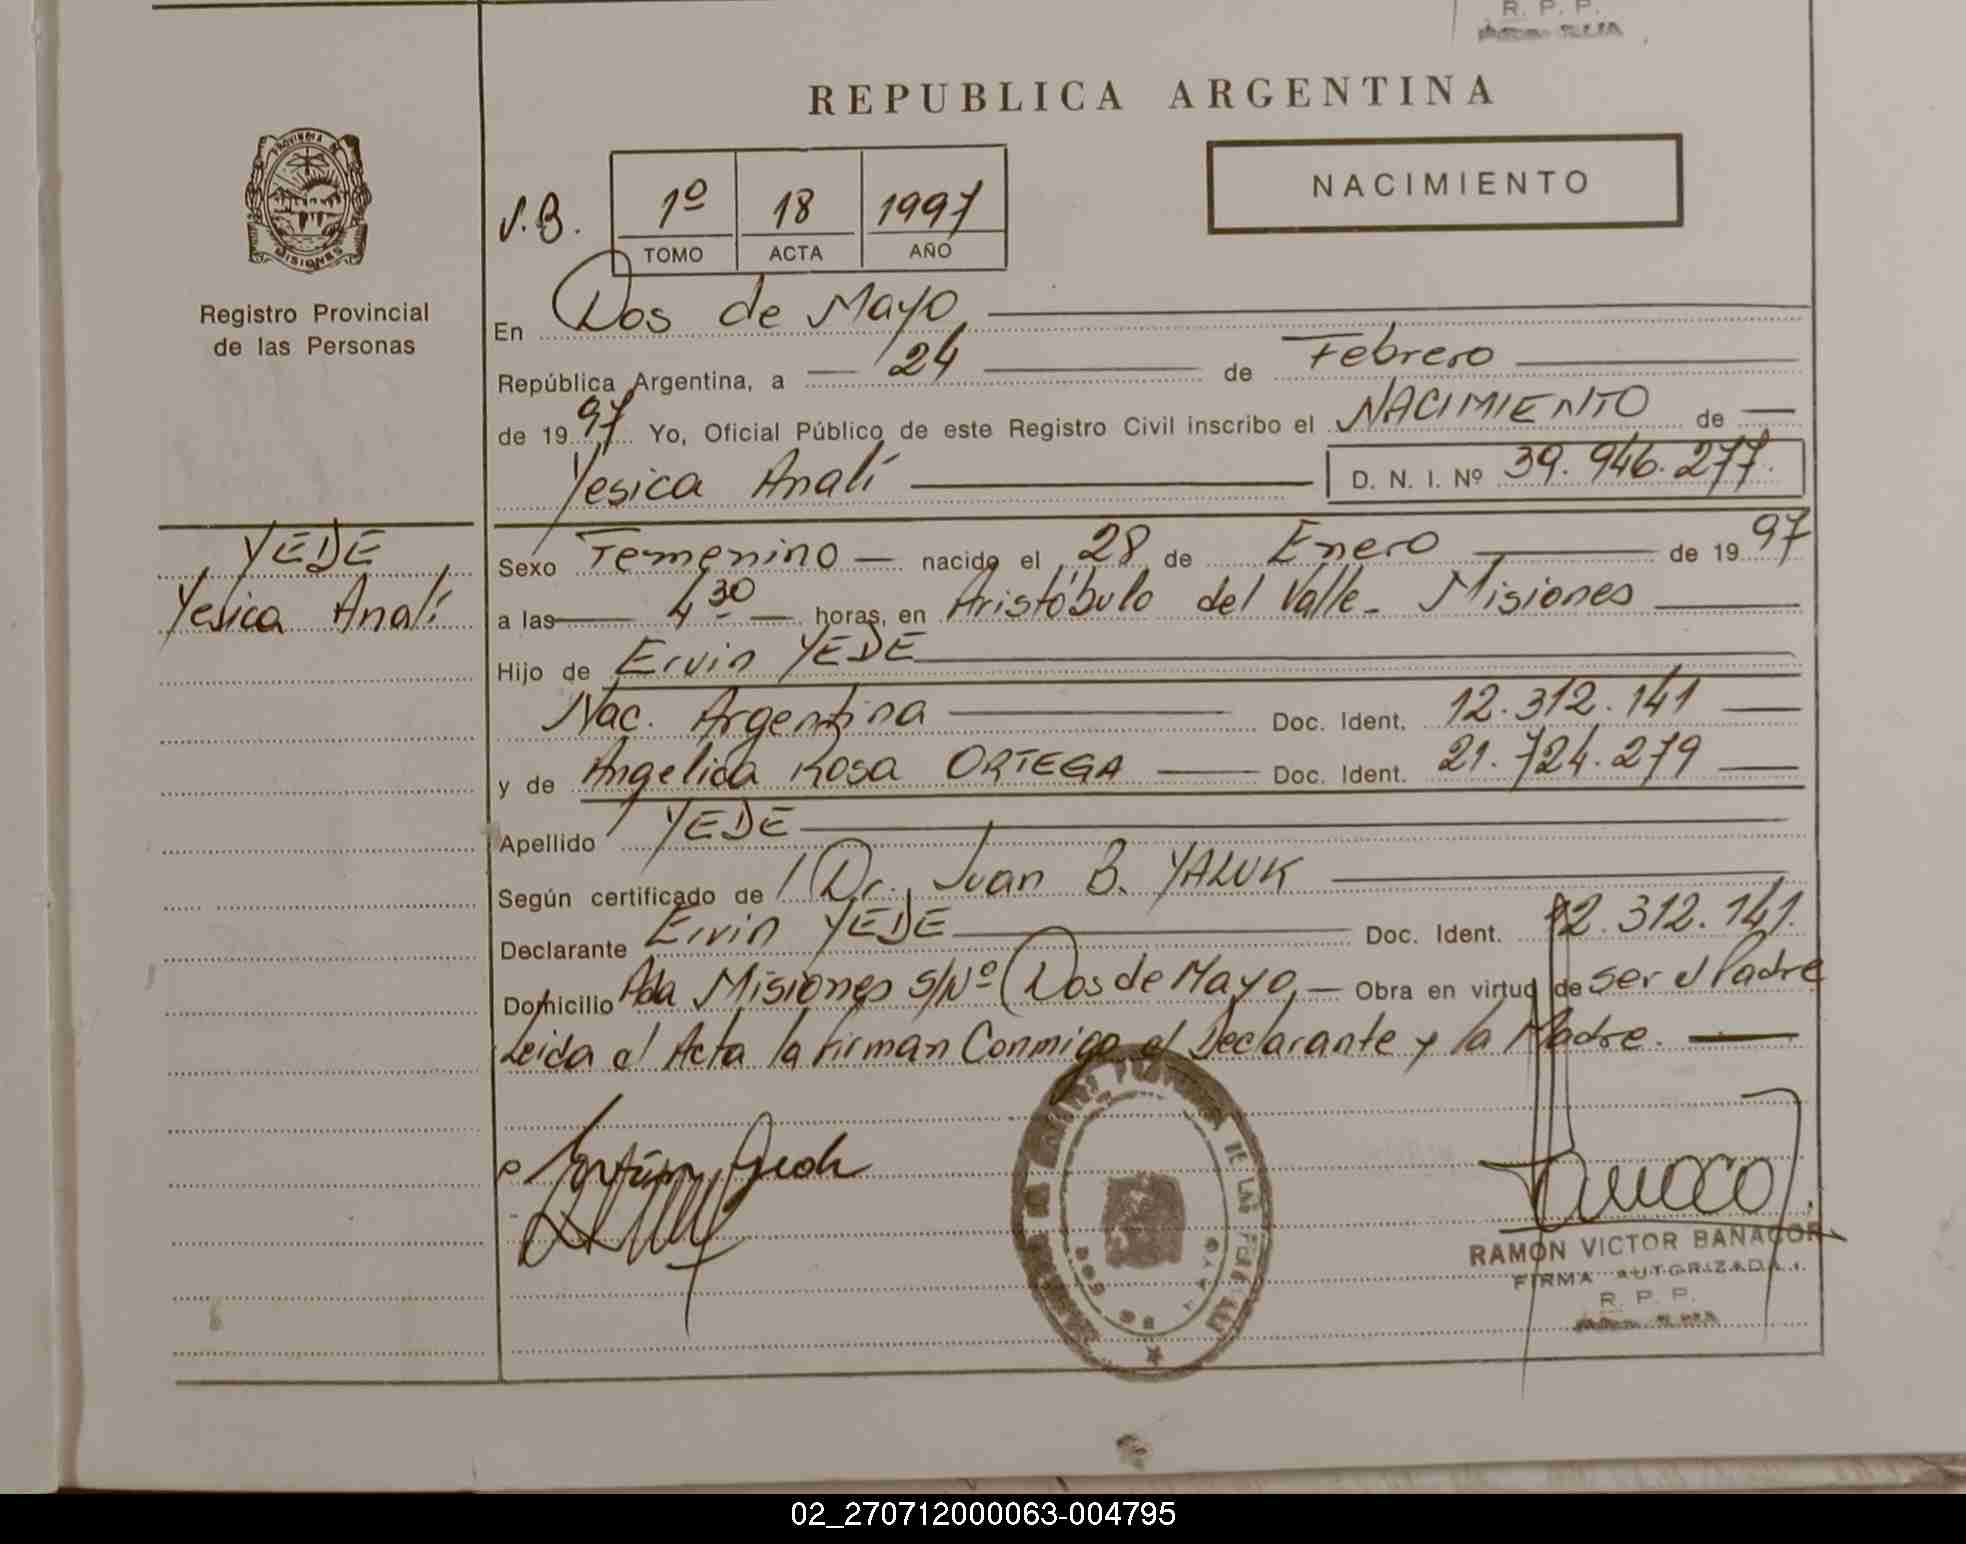 R. P. P.
REPUBLICA ARGENTINA
PROVINCIA DE
MISIONES
NACIMIENTO
V.B.
1º 18 1997
TOMO ACTA AÑO
Registro Provincial
de las Personas
En Dos de Mayo
República Argentina, a 24 de Febrero
de 1997 Yo, Oficial Público de este Registro Civil inscribo el NACIMIENTO de
Yesica Analí D. N. I. Nº 39.946.277.
YEDE
Yesica Analí
Sexo Femenino nacido el 28 de Enero de 1997
a las 4 30 horas, en Aristóbulo del Valle - Misiones
Hijo de Ervin YEDE
Nac. Argentina Doc. Ident. 12.312.141
y de Angelica Rosa ORTEGA Doc. Ident. 21.724.279
Apellido YEDE
Según certificado de Dr. Juan B. YALUK
Declarante Ervin YEDE Doc. Ident. 12.312.141.
Domicilio Avda Misiones S/Nº Dos de Mayo Obra en virtud de ser el Padre
Leida el Acta la firman Conmigo el Declarante y la Madre.
DE LAS
DOS DE MAYO
RAMON VICTOR BANACOR
FIRMA AUTORIZADA
R. P. P.
02_270712000063-004795